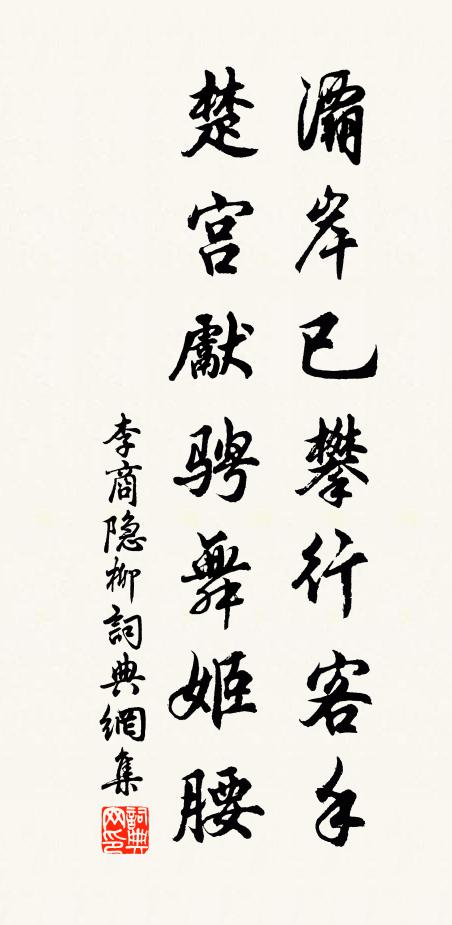 灞岸已攀行客手
楚宫獻骋舞姬腰
李商隐柳詞典網集
詞典网印